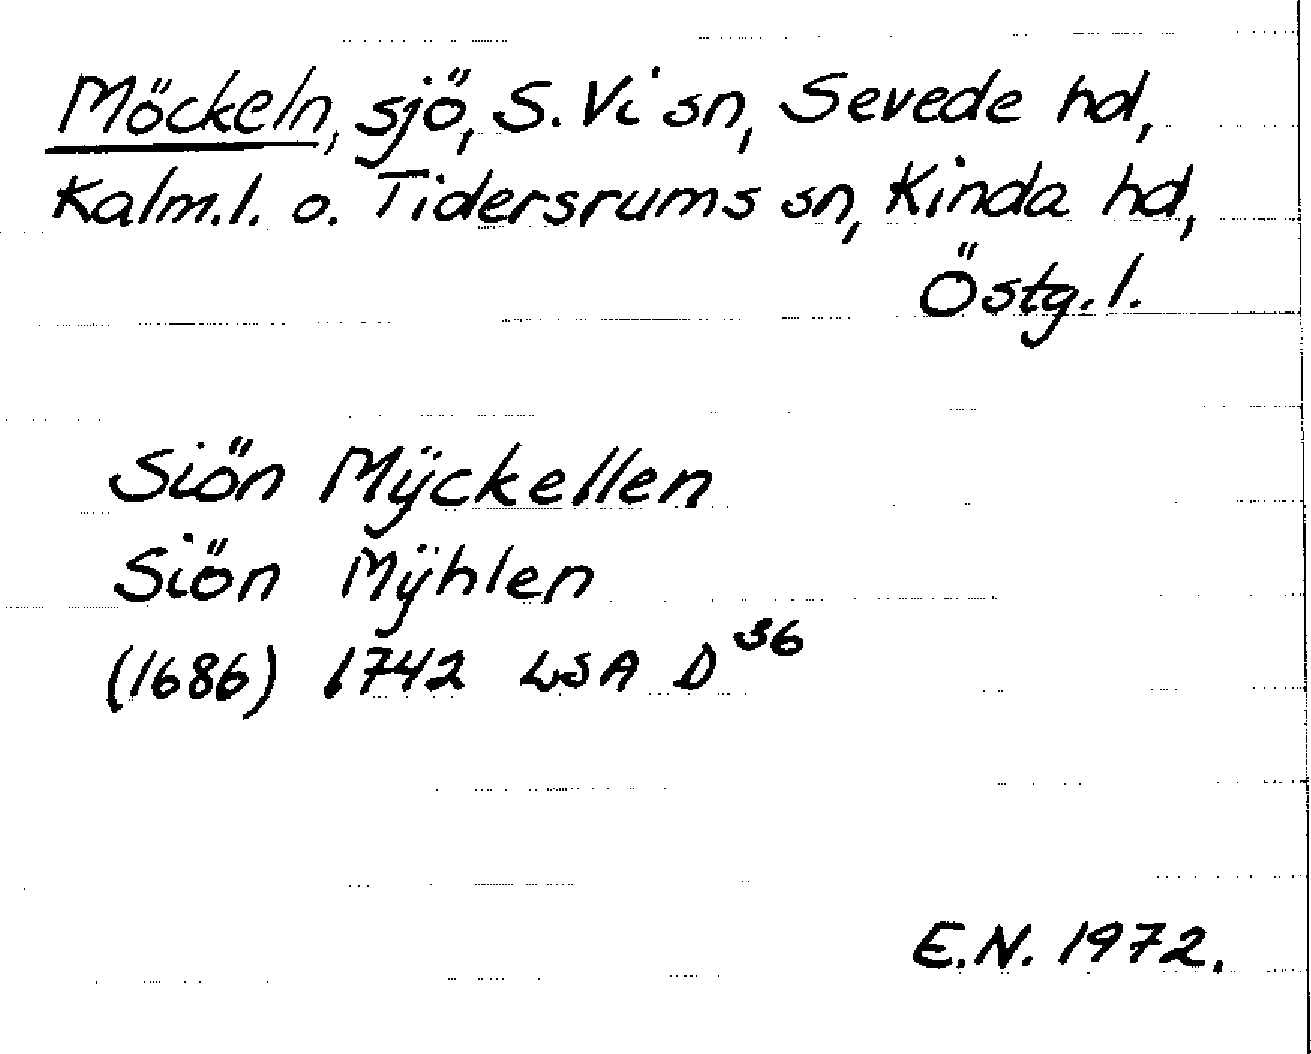 Möckeln, sjö, S. Vi sn, Sevede hd,
Kalm.l. o. Tidersrums sn, Kinda hd,
Östg. l.
Siön Mÿckellen
Siön Mÿhlen
(1686) 1742 LSA D 36
E.N. 1972.